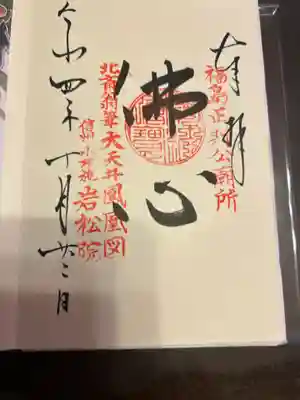 奉拝
福島正則公廟所
佛心
北斎翁筆 大天井鳳凰図
信州小布施 岩松院
令和四年十月廿二日